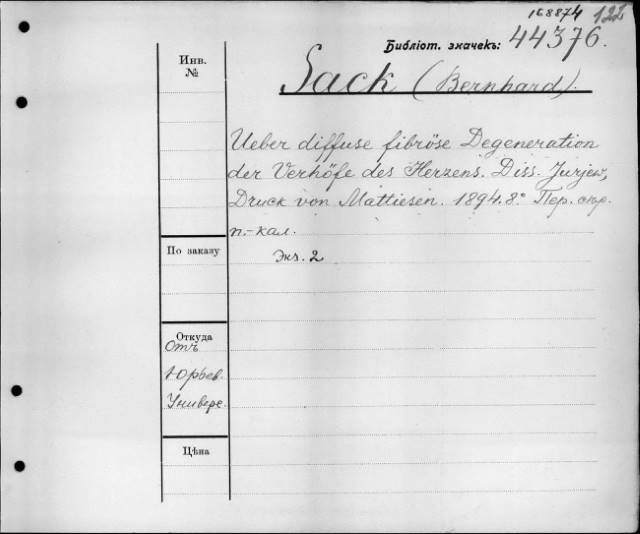 168874 122
Библіот. значекъ: 44376.
Инв.
№
Sack (Bernhard).
Ueber diffuse fibröse Degeneration
der Verhöfe des Herzens. Diss. Jurjew,
Druck von Mattiesen. 1894. 8.° Пер. скр.
п.-кал.
По заказу
Экз. 2
Откуда
Отъ
Юрьев.
Универс.
Цѣна